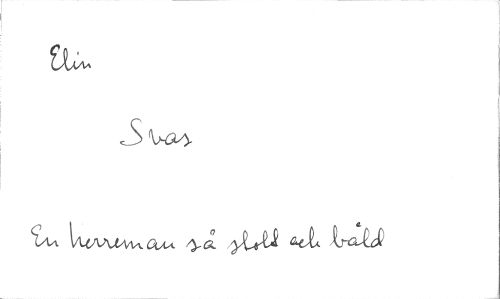 Elin
Svas
En herreman så stolt och båld